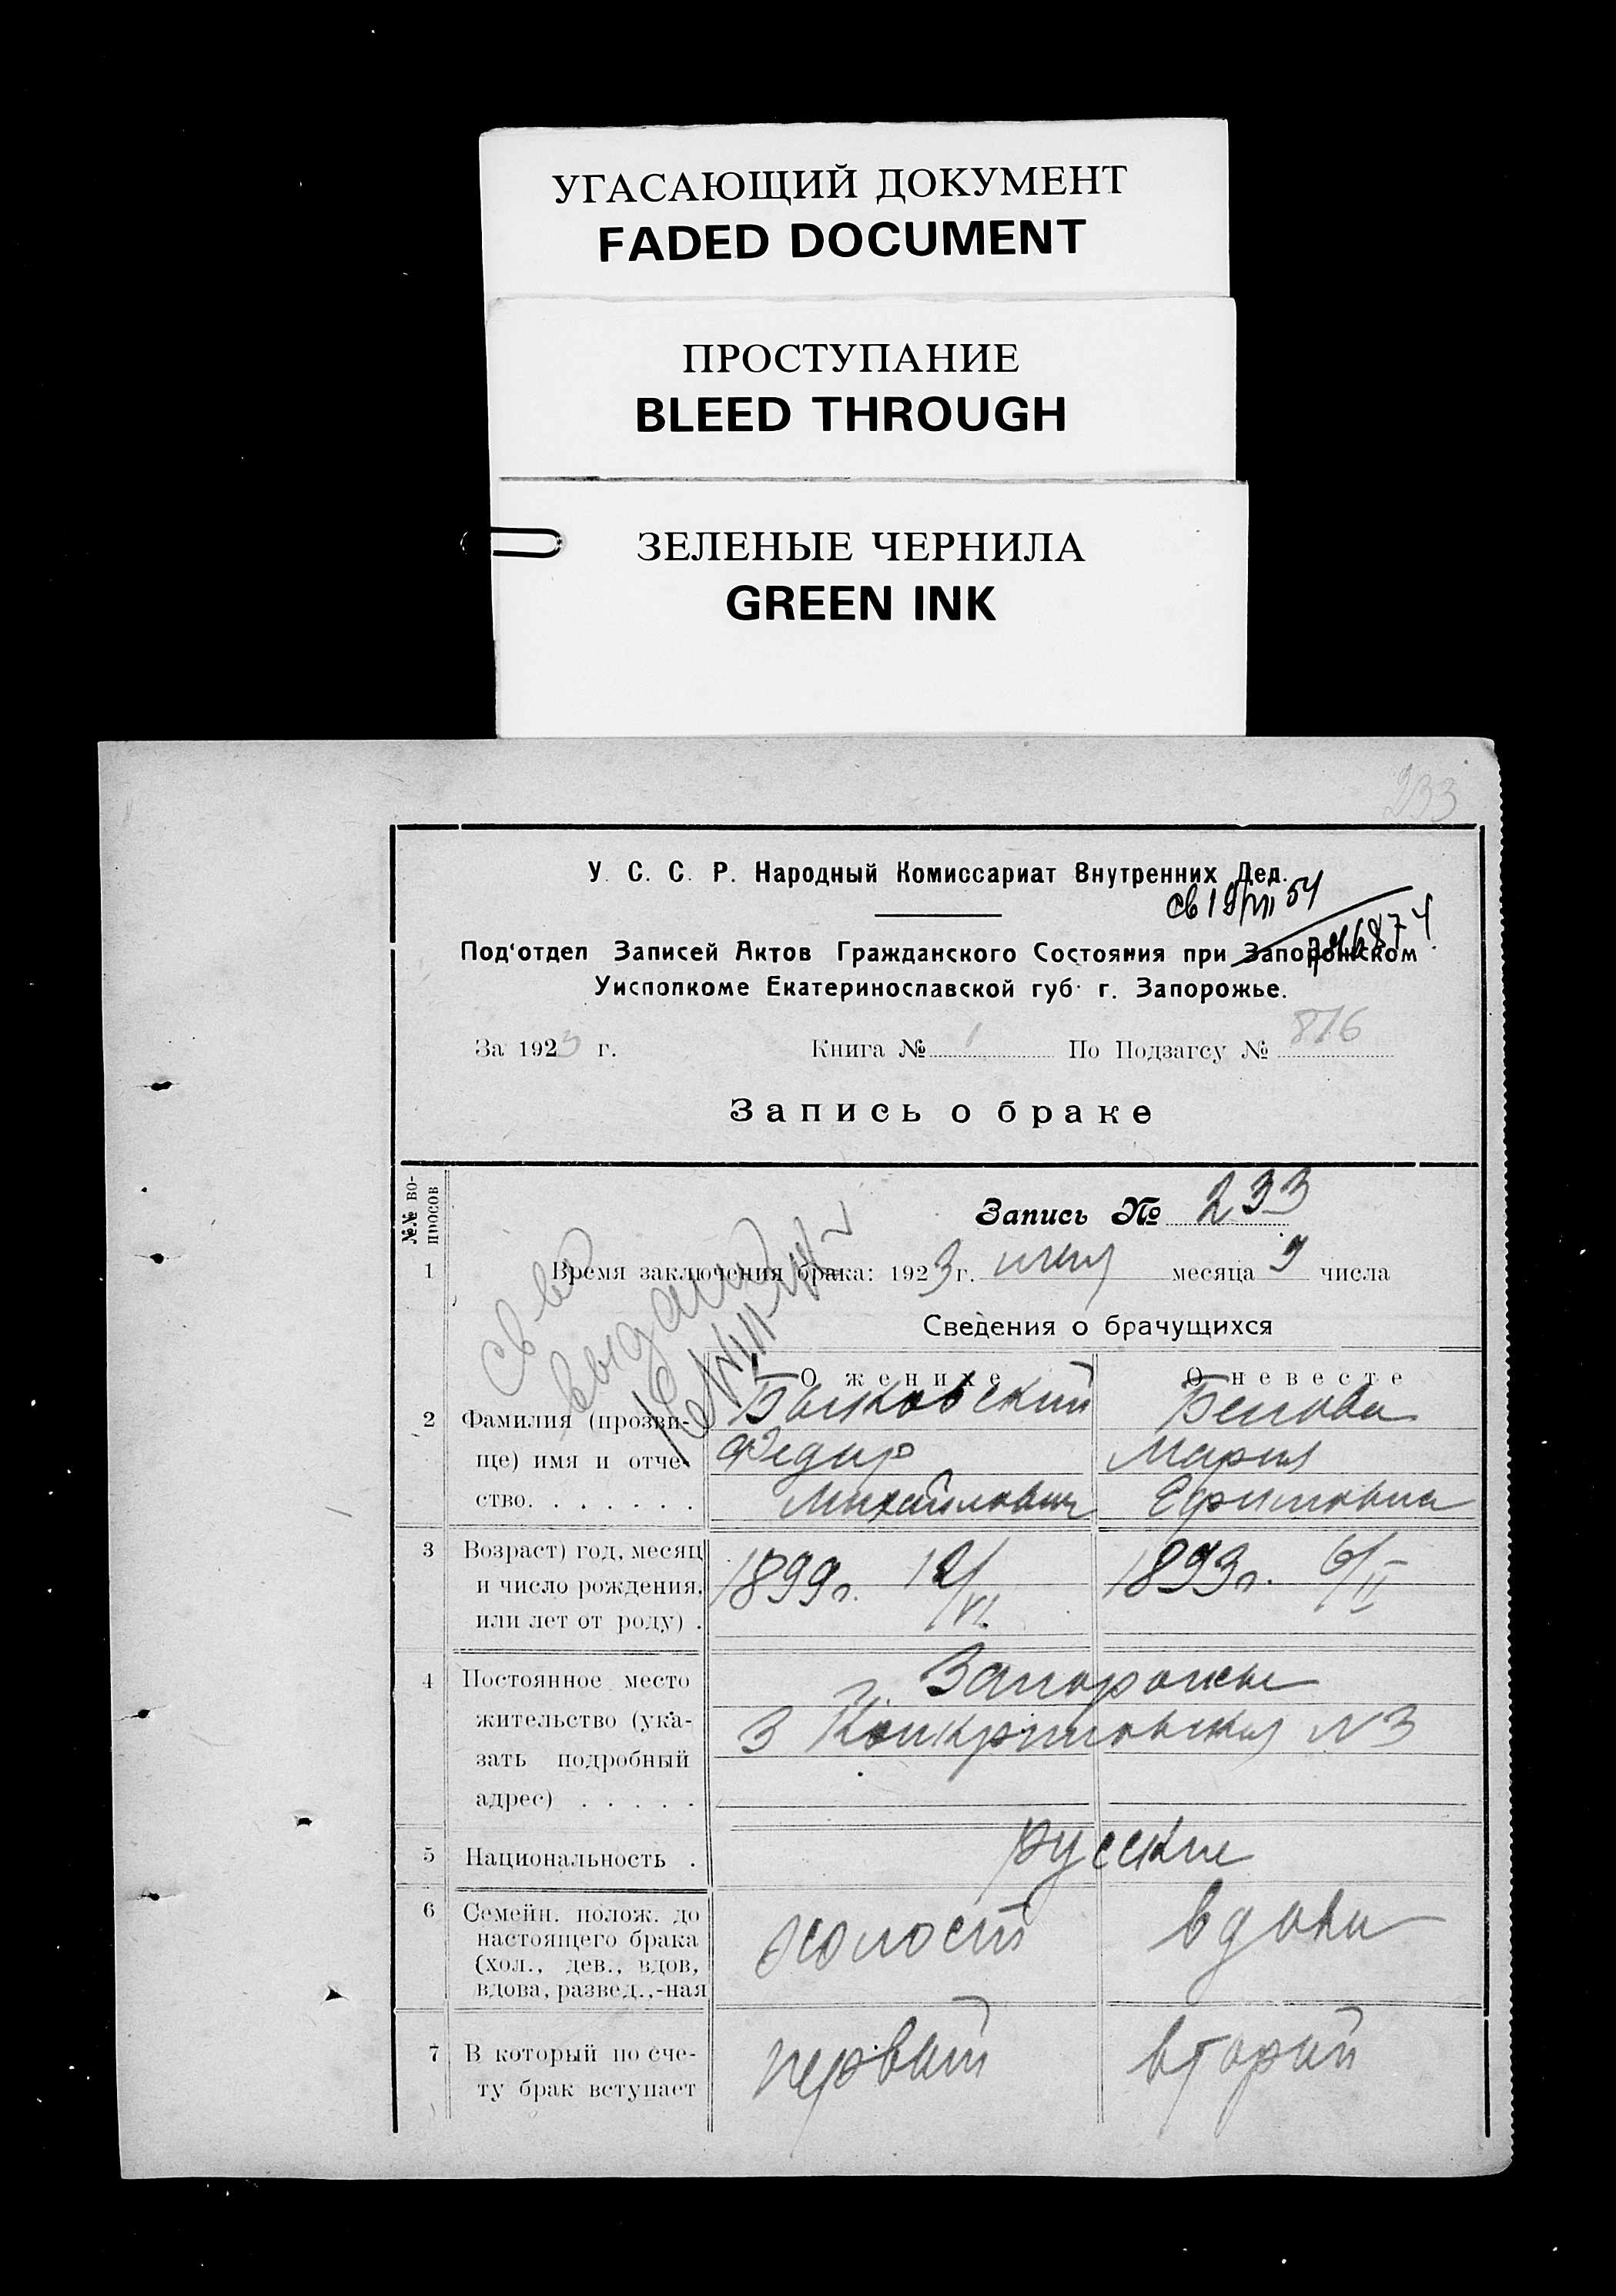 УГАСАЮЩИЙ ДОКУМЕНТ
FADED DOCUMENT
ПРОСТУПАНИЕ
BLEED THROUGH
ЗЕЛЕНЫЕ ЧЕРНИЛА
GREEN INK
233
У. С. С. Р. Народный Комиссариат Внутренних Дед.
св 19/VII 54
Под'отдел Записей Актов Гражданского Состояния при Запорожском
Уисполкоме Екатеринославской губ. г. Запорожье.
За 1923 г. Книга № 1 По Подзагсу № 876
Запись о браке
№№ во-
просов
Запись № 233
1 Время заключения брака: 1923 г. июня месяца 9 числа
Сведения о брачущихся
О женихе О невесте
2 Фамилия (прозви- Быковский Белова
ще) имя и отче- Федир Мария
ство. . . . . . . Михайлович Ефимовна
3 Возраст) год, месяц 1899 г. 12/VI. 1893 г. 6/II
и число рождения,
или лет от роду) .
4 Постоянное место Запорожье
жительство (ука- 3 N 3
зать подробный
адрес) . . . . .
5 Национальность . русские
6 Семейн. полож. до холост вдова
настоящего брака
(хол., дев., вдов,
вдова, развед.,-ная
7 В который по сче- первый вторый
ту брак вступает
св во
выдано